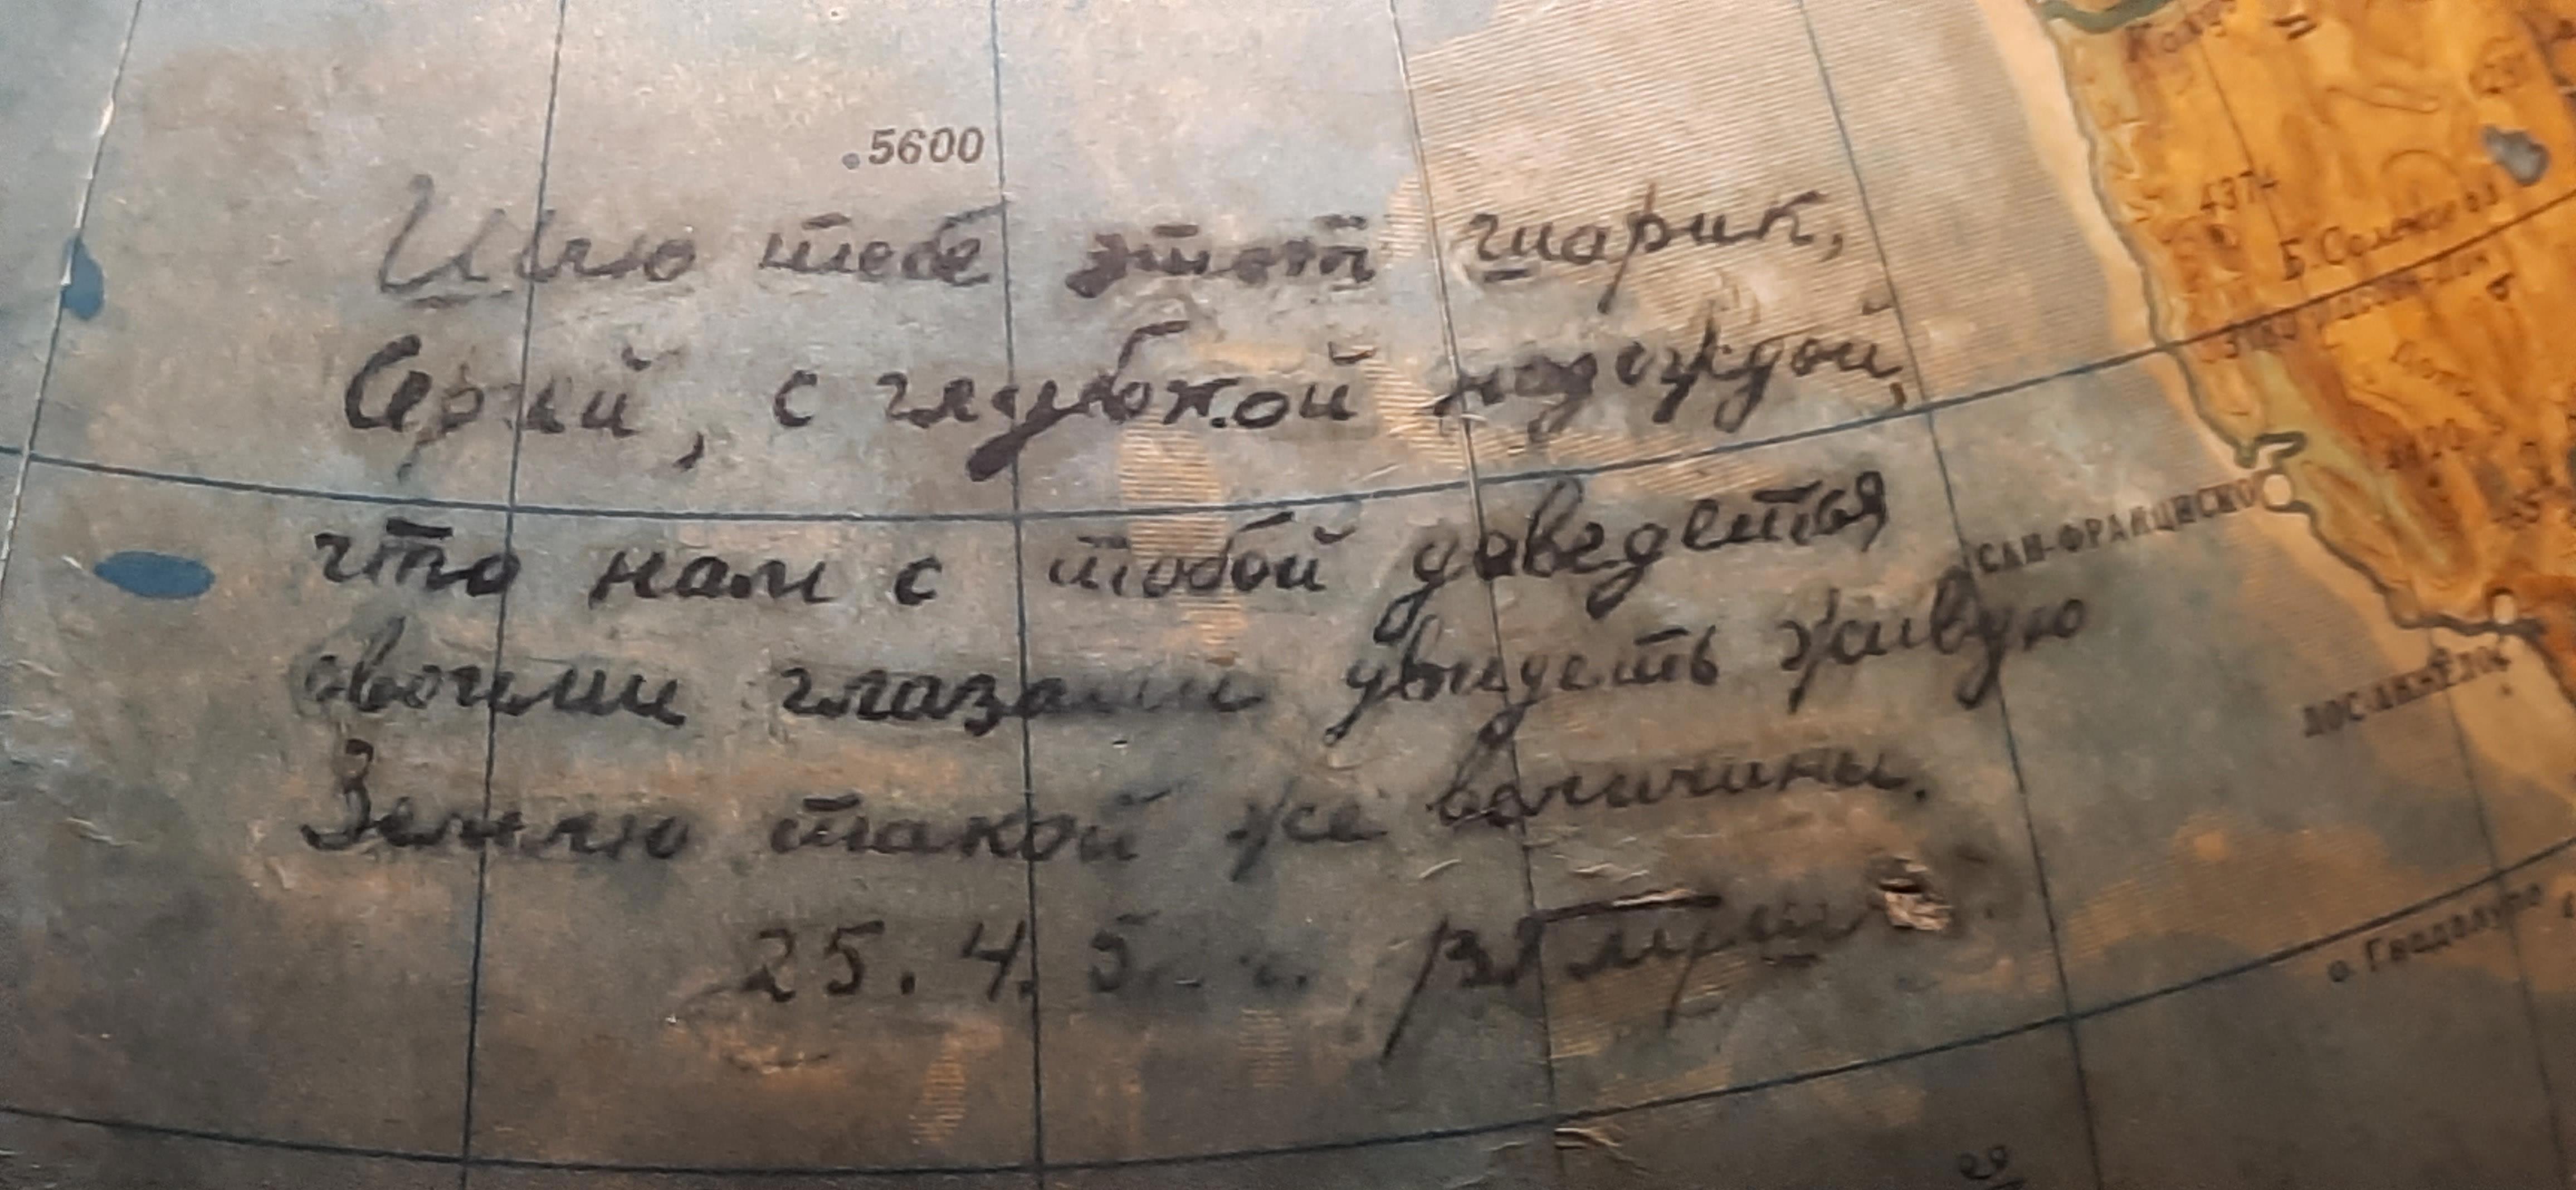 .5600
Шлю тебе этот шарик,
Сергей, с глубокой надеждой,
что нам с тобой доведется
своими глазами увидеть живую
Землю такой же величины.
25.4.5
4374
САН-ФРАНЦИСКО
ЛОС-АНЖЕЛОС
о. Гвадалупе